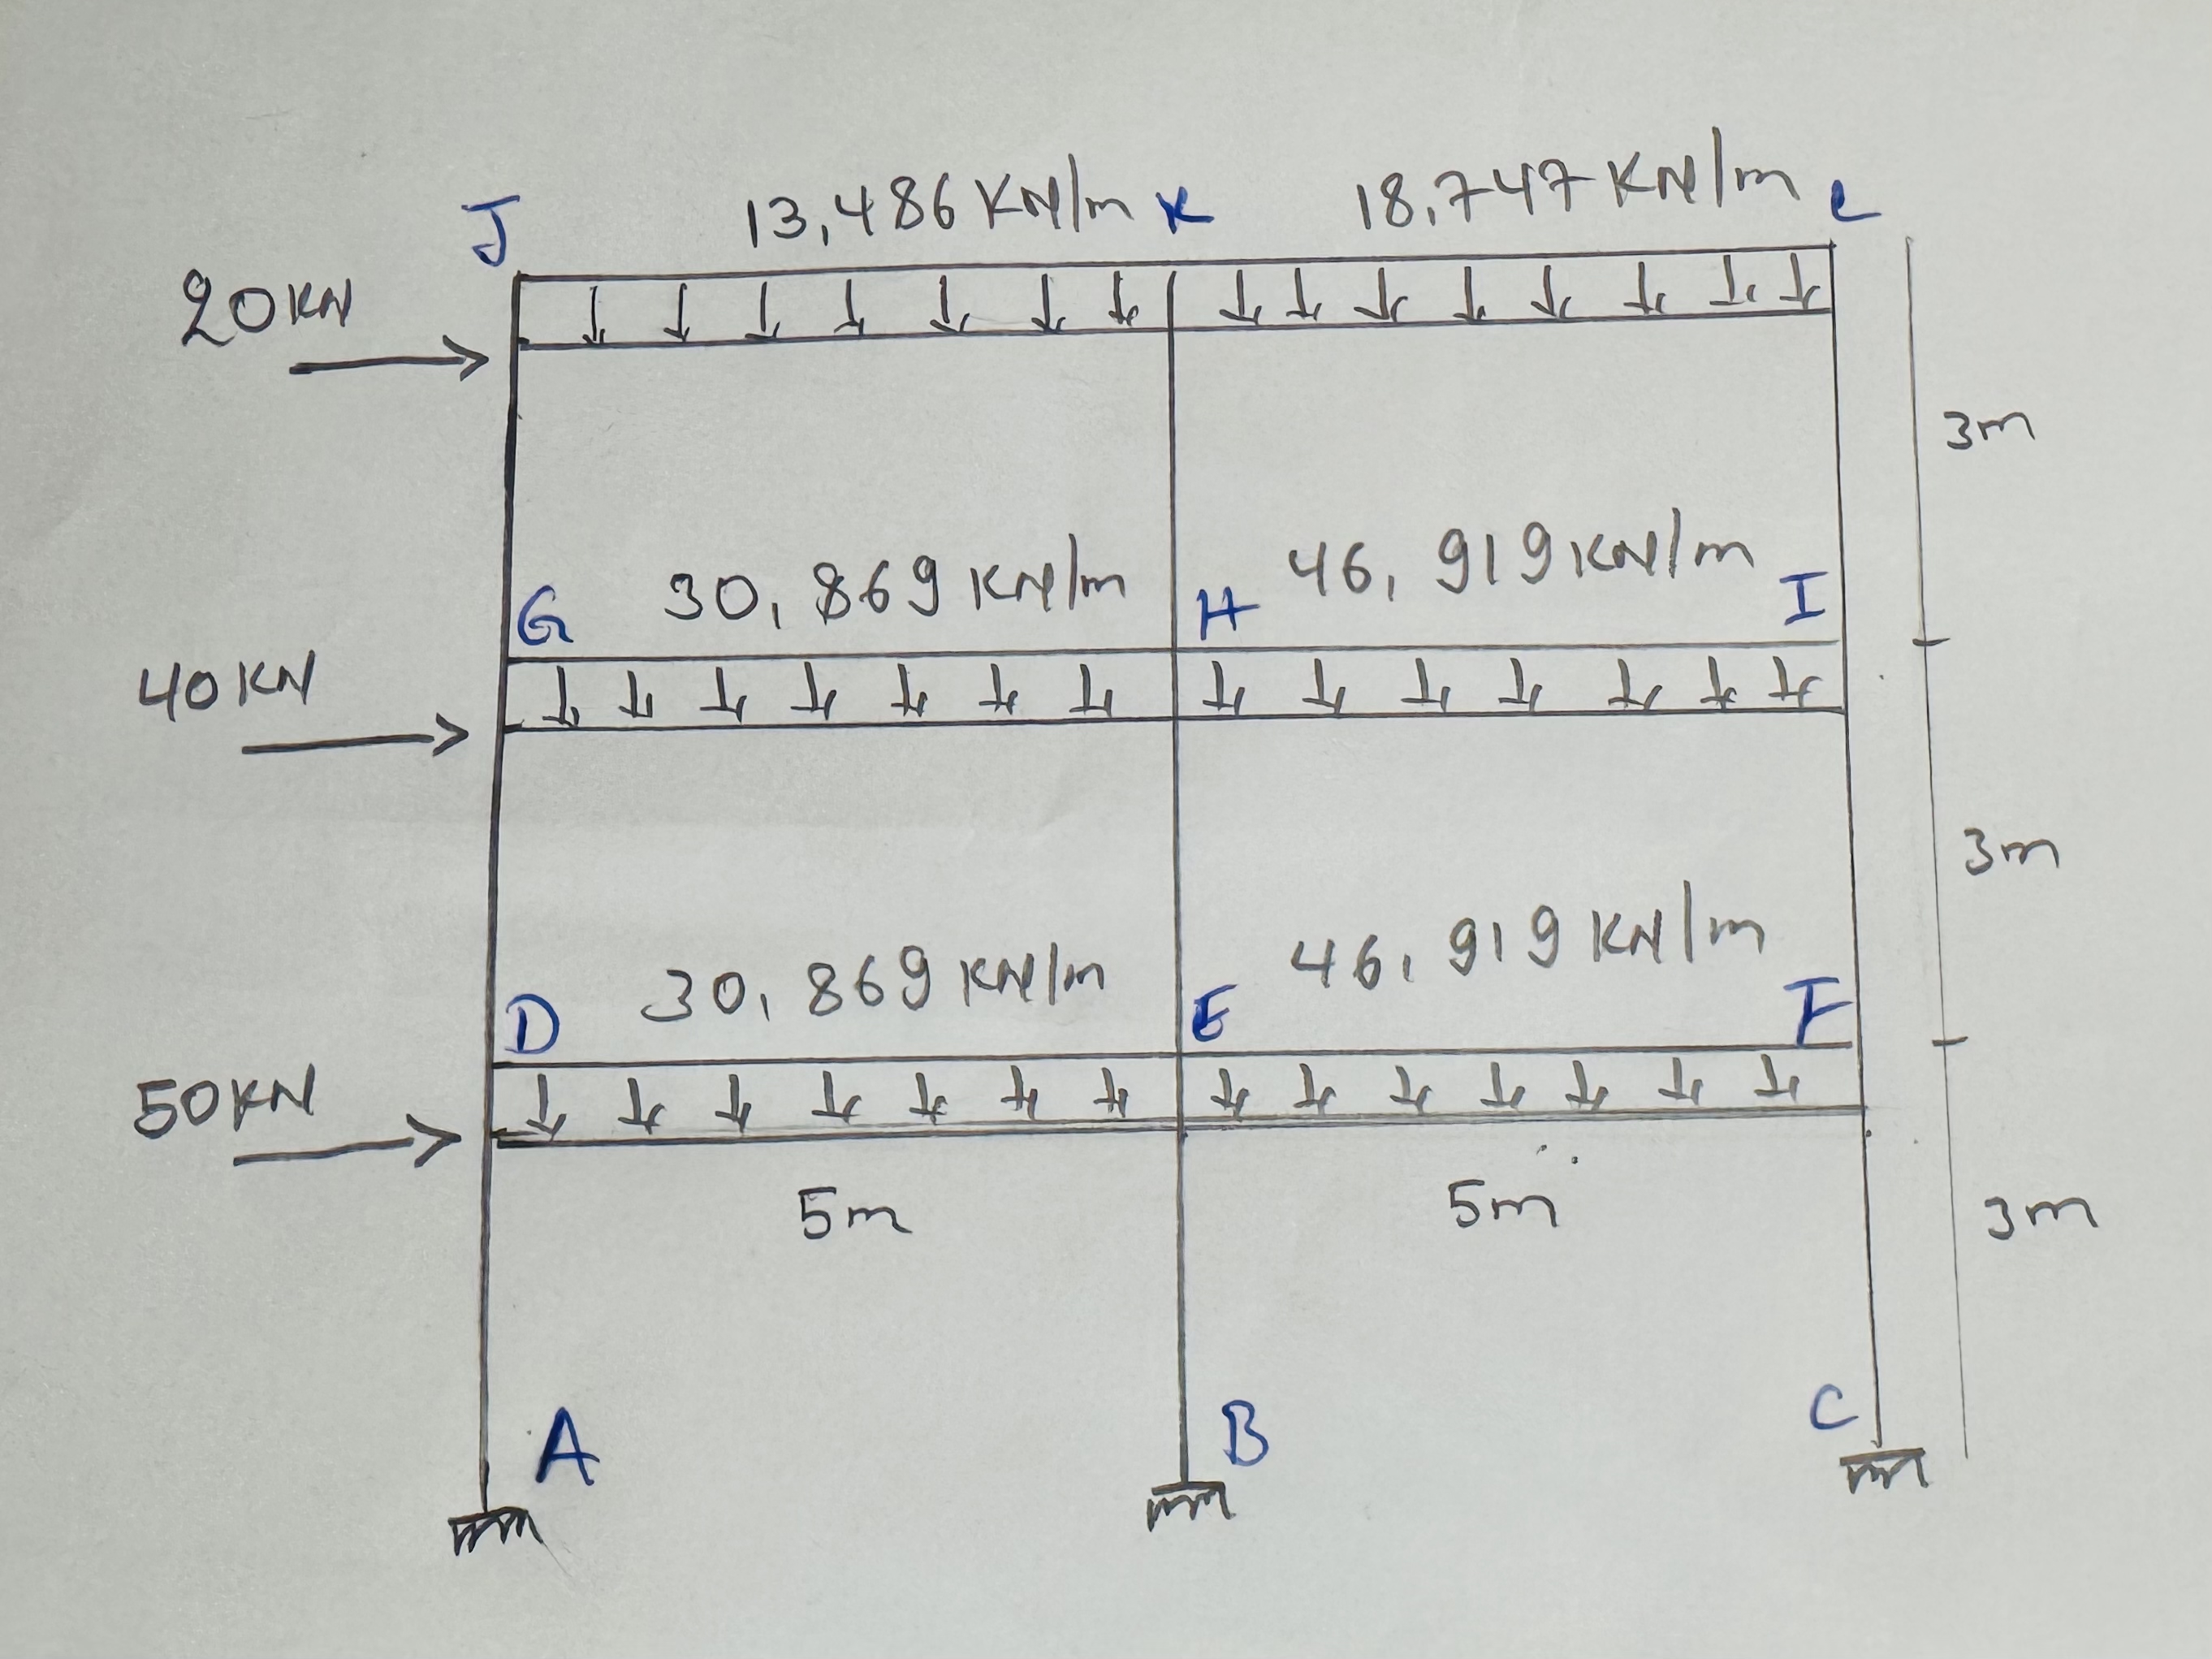 J 13,486 KN/m K 18,747 KN/m L
20KN
3m
G 30,869 KN/m H 46,919 KN/m I
40KN
3m
D 30,869 KN/m E 46,919 KN/m F
50KN
5m 5m 3m
A B C